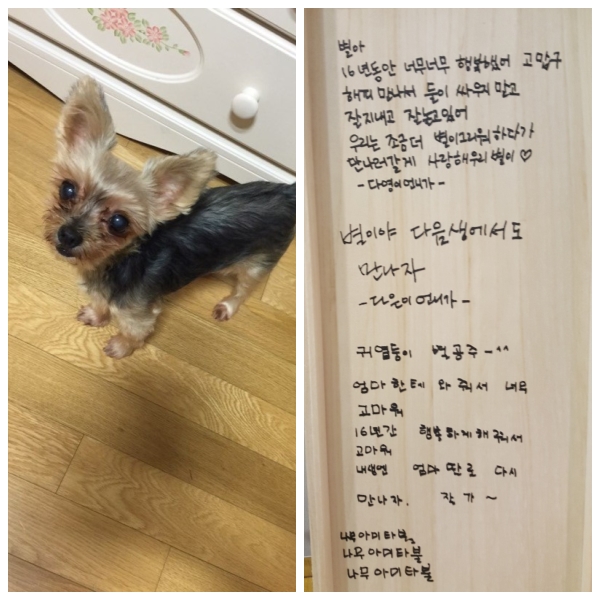 별아
16년동안 너무너무 행복했어 고맙구
해피 만나서 둘이 싸우지 말고
잘지내고 잘놀고있어
우리는 조금더 별이그리워하다가
만나러갈게 사랑해우리별이♡
-다영이언니가-
별이야 다음생에서도
만나자
-다은이언니가-
귀염둥이 별공주-^^
엄마한테 와줘서 너무
고마워
16년간 행복하게해줘서
고마워
내생엔 엄마딴로 다시
만나자. 잘가~
나무아미타불
나무아미타불
나무아미타불